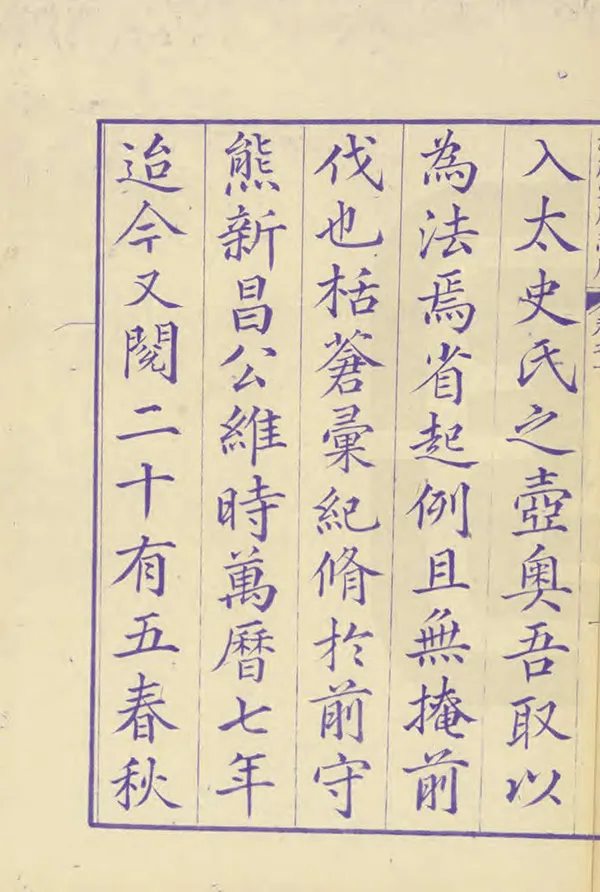 入太史氏之壺奧吾取以
為法焉省起例且無掩前
伐也栝蒼彙紀脩於前守
熊新昌公維時萬曆七年
迨今又閱二十有五春秋